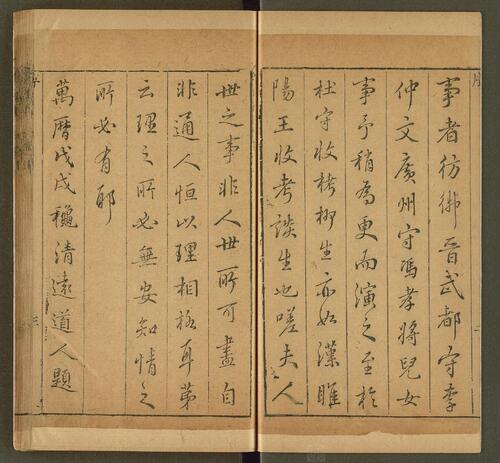 事者彷彿晉武都守李
仲文廣州守馮孝將兒女
事予稍為更而演之至於
杜守收栲柳生亦如漢睢
陽王收考談生也嗟夫人
世之事非人世所可盡自
非通人恒以理相格耳第
云理之所必無安知情之
所必有耶
萬曆戊戌秋清遠道人題